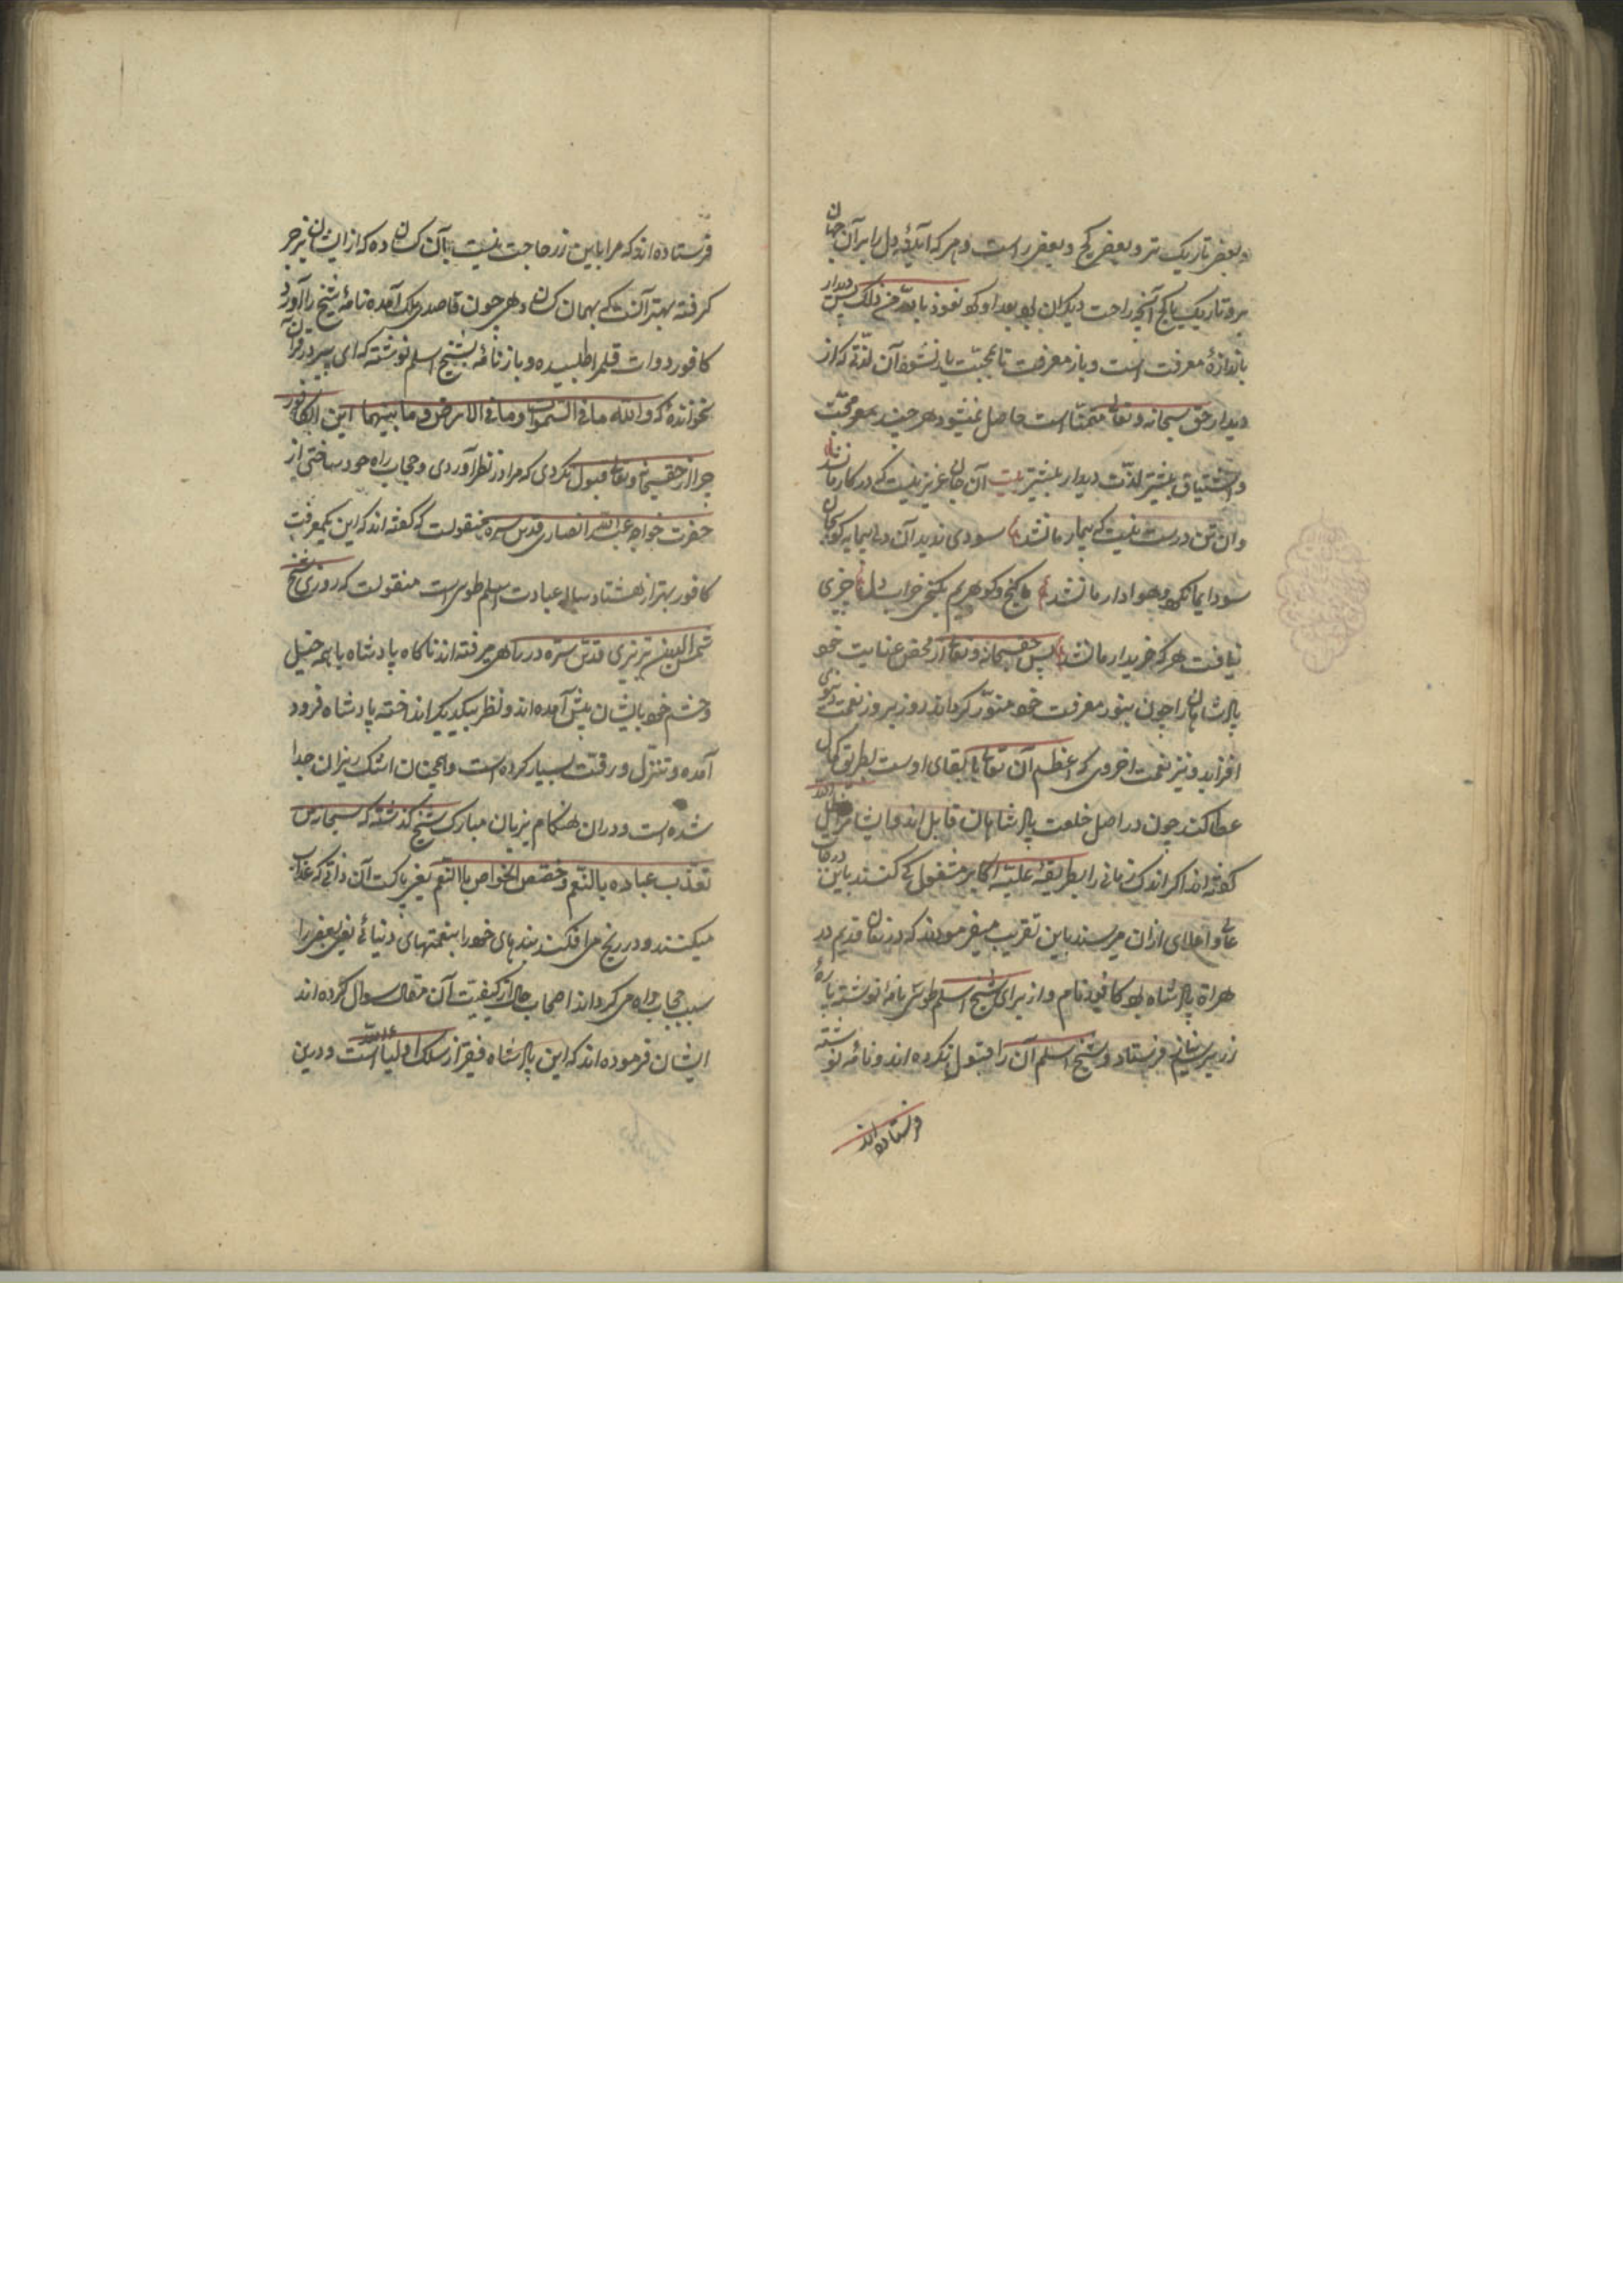 وبعضی تاریک تر و بعضی کج و بعضی راست و هر که آینهٔ دل را بر آن جهان
برد تاریک یا کج آنچه راحت دیگران بود بعد او کو نعوذ بالله من ذلک پس دیدار
باندازهٔ معرفت است و باز معرفت تا بمحبت یار نشود آن لذتی که از
دیدار حق سبحانه وتعالی متمنّا است حاصل نمیشود هر چند معرفت محبت
واشتیاق بیشتر لذّت دیدار بیشتر بیت آن جان عزیز نیست که در کار ما نشد
وان تن درست نیست که بیمار ما نشد سودی ندید آن
سودا هوادار ما نشد ما گنج گوهریم بکنج خراب دل چیزی
نیافت هر که خریدار ما نشد پس حقسبحانه وتعالی از محض عنایت خود
پادشاهان را چون بنور معرفت خود منوّر کرداند روز بروز نعمت دنیوی
افزاید و نیز نعمت اخروی که اعظم آن تعالی لقای اوست بطریق کمال
عطا کند چون در اصل خلعت پادشاهان قابل اند
گفته اند اگر اندک زمانی را بطریقهٔ علیّه اکابر مشغولی کنند باین درجات
عالی و اعلای ازان میرسند باین تقریب میفرمودند که در زمان قدیم در
هراة پادشاه بود کافور نام و از برای شیخ اسلم طوسی نامه نوشته پارهٔ
زر برسم نیاز فرستاد و شیخ اسلم آن را قبول نکرده اند و نامه نوشته
فرستاده اند
فرستاده اند که مرا باین زر حاجت نیست بآن کسان ده که از ایشان بزجر
گرفته بهتر آنست که بهمان کسان دهی چون قاصد ملک آمده نامهٔ شیخ را آورد
کافور دوات قلم را طلبیده و باز نامه بشیخ اسلم نوشته که ای پیر در قرآن
نخواندهٔ که ولله ما فی السموات وما فی الارض وما بینهما این الکافور
چرا از حقسبحانه وتعالی قبول نکردی که مرا در نظر آوردی و حجاب راه خود ساختی از
حضرت خواجه عبدالله انصاری قدس سره منقولست که گفته اند که این یک معرفت
کافور بهتر از هشتاد ساله عبادت اسلم طوسی است منقولست که روزی شیخ
شمس الدین تبریزی قدس سره در راهی میرفته اند ناگاه پادشاه با همه خیل
وحشم خود بایشان پیش آمده اند و نظر بیکدیگر انداخته پادشاه فرود
آمده و تنزل و رقت بسیار کرده است و همچنان اشک ریزان جدا
شده است و دران هنگام بزبان مبارک شیخ گذشته که سبحان من
تعذّب عباده بالنّعم و خصّص الخواص بالنّعم یعنی پاکست آن ذاتی که عذاب
میکنند و در رنج می افکند بندهای خود را بنعمتهای دنیائی یعنی بعضی را
سبب حجاب راه می گرداند اصحاب حال از کیفیت آن مقال سوال کرده اند
ایشان فرموده اند که این پادشاه فقیر از سلک اولیاءالله است و درین